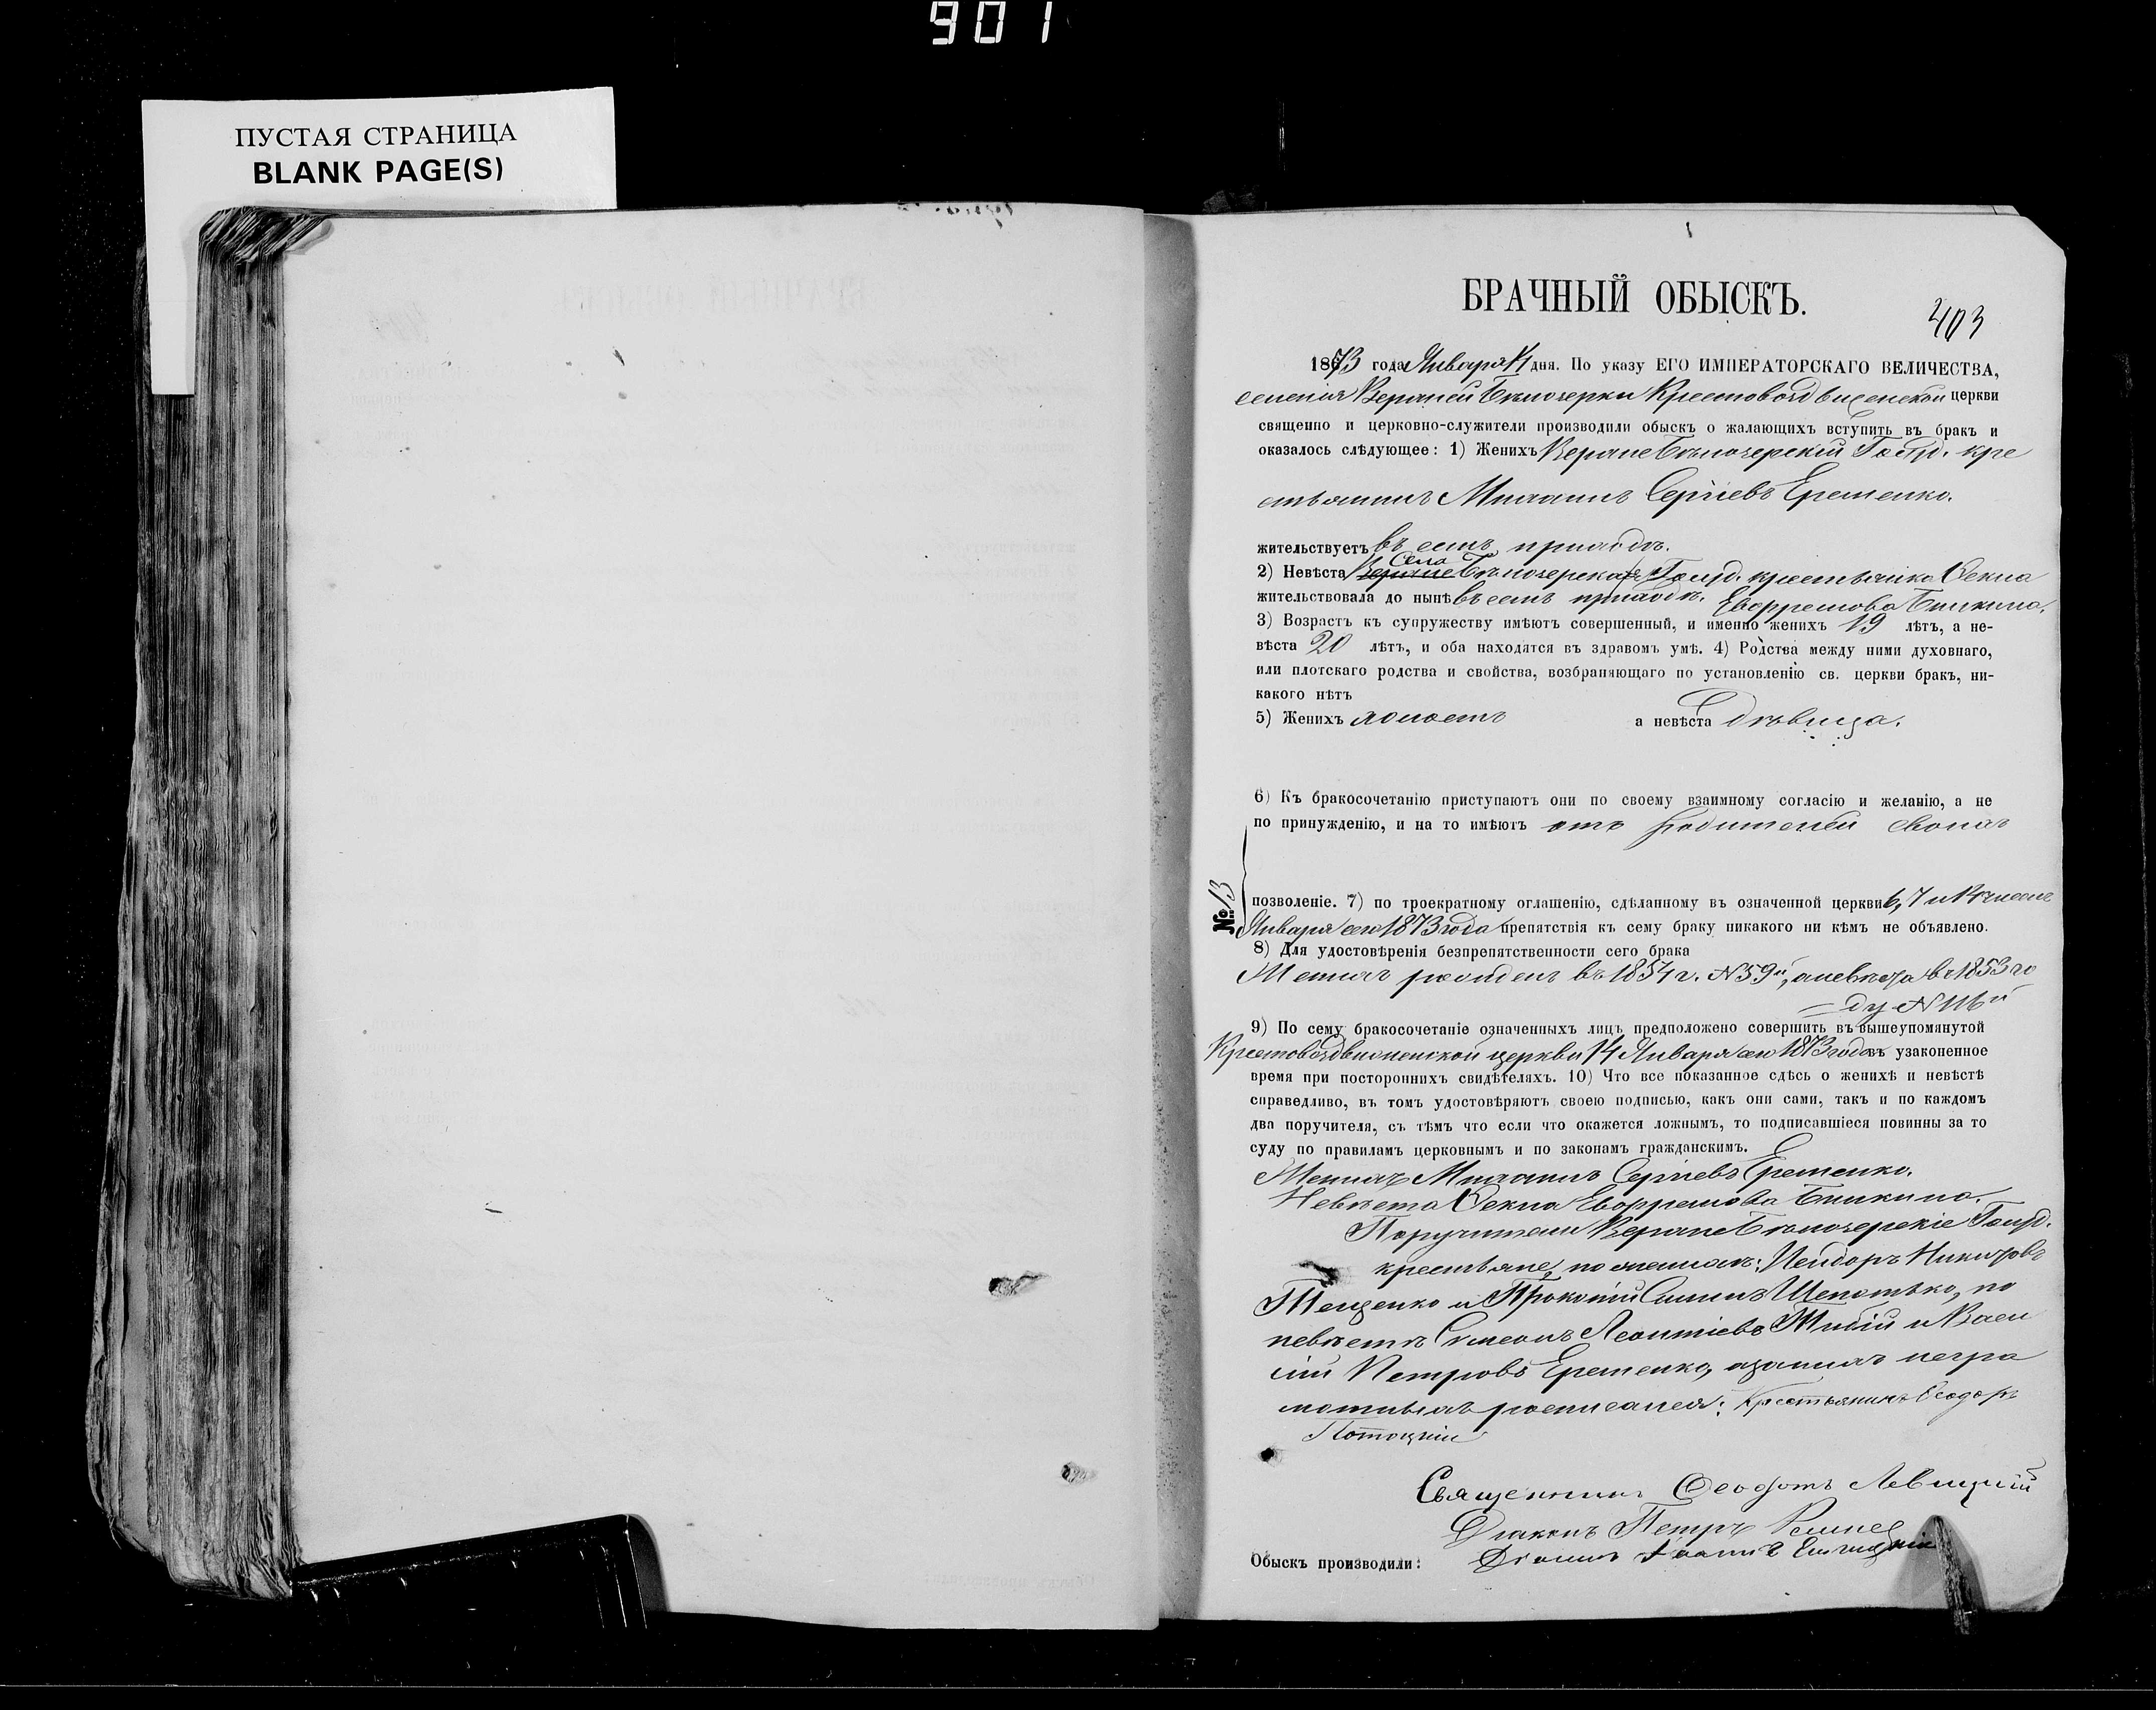 901
ПУСТАЯ СТРАНИЦА
BLANK PAGE(S)
БРАЧНЫЙ ОБЫСКЪ.
403
1873 года Января 14 дня. По указу ЕГО ИМПЕРАТОРСКАГО ВЕЛИЧЕСТВА,
селенія Верхней Бѣлозерки Крестовоздвиженской церкви
священно и церковно-служители производили обыскъ о жалающихъ вступить въ бракъ и
оказалось слѣдующее: 1) Женихъ Верхнебѣлозерскій Госуд. кре
стьянинъ Михаилъ Сергіевъ Еременко.
жительствуетъ въ семъ приходѣ.
2) Невѣста Села Бѣлозерска Госуд. крестьянка Ѳекла
жительствовала до нынѣ въ семъ приходѣ. Евфремова Бичкина.
3) Возрастъ къ супружеству имѣютъ совершенный, и именно женихъ 19 лѣтъ, а не-
вѣста 20 лѣтъ, и оба находятся въ здравомъ умѣ. 4) Родства между ними духовнаго,
или плотскаго родства и свойства, возбраняющаго по установленію св. церкви бракъ, ни-
какого нѣтъ
5) Женихъ холостъ а невѣста дѣвица.
6) Къ бракосочетанію приступаютъ они по своему взаимному согласію и желанію, а не
по принужденію, и на то имѣютъ отъ родителей своихъ
№ 13
позволеніе. 7) по троекратному оглашенію, сдѣланному въ означенной церкви 6, 7 и 14 числе
Января сего 1873 года препятствія къ сему браку никакого ни кѣмъ не объявлено.
8) Для удостовѣренія безпрепятственности сего брака
Женихъ рожденъ въ 1854 г. N 59й, а невѣста въ 1853 го
ду N 116й
9) По сему бракосочетаніе означенныхъ лицъ предположено совершить въ вышеупомянутой
Крестовоздвиженской церкви 14 Января сего 1873 года въ узаконенное
время при постороннихъ свидѣтеляхъ. 10) Что все показанное сдѣсь о женихѣ и невѣстѣ
справедливо, въ томъ удостовѣряютъ своею подписью, какъ они сами, такъ и по каждомъ
два поручителя, съ тѣмъ что если что окажется ложнымъ, то подписавшіеся повинны за то
суду по правиламъ церковнымъ и по законамъ гражданскимъ.
Женихъ Михаилъ Сергіевъ Еременко.
Невѣста Ѳекла Евфремова Бичкина.
Поручители Верхнебѣлозерскіе Госуд.
крестьяне, по женихѣ:
и Прокопій Шепотько, по
невѣстѣ Симеонъ Леонтіевъ и Васи
лій Петровъ Еременко, а за нихъ негра
мотныхъ росписался: Крестьянинъ Ѳеодоръ
Потоцкій
Священникъ Ѳеодотъ Левицкій
Діаконъ Петръ
Обыскъ производили: Іоаннъ